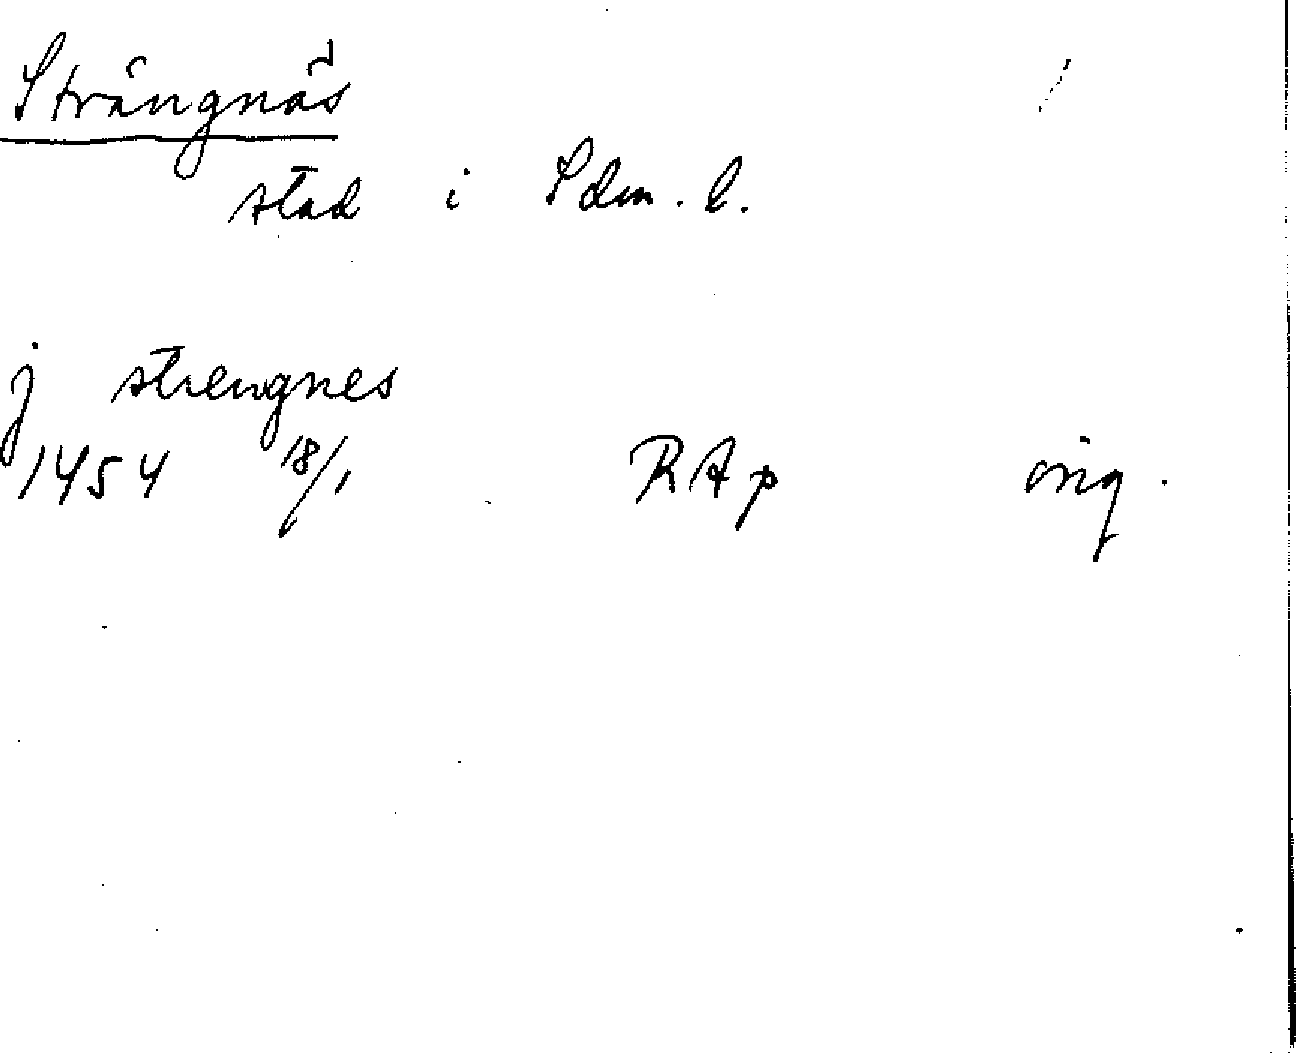 Strängnäs
stad i Sdm. l.
j strengnes
1454 18/1 RAp orig.